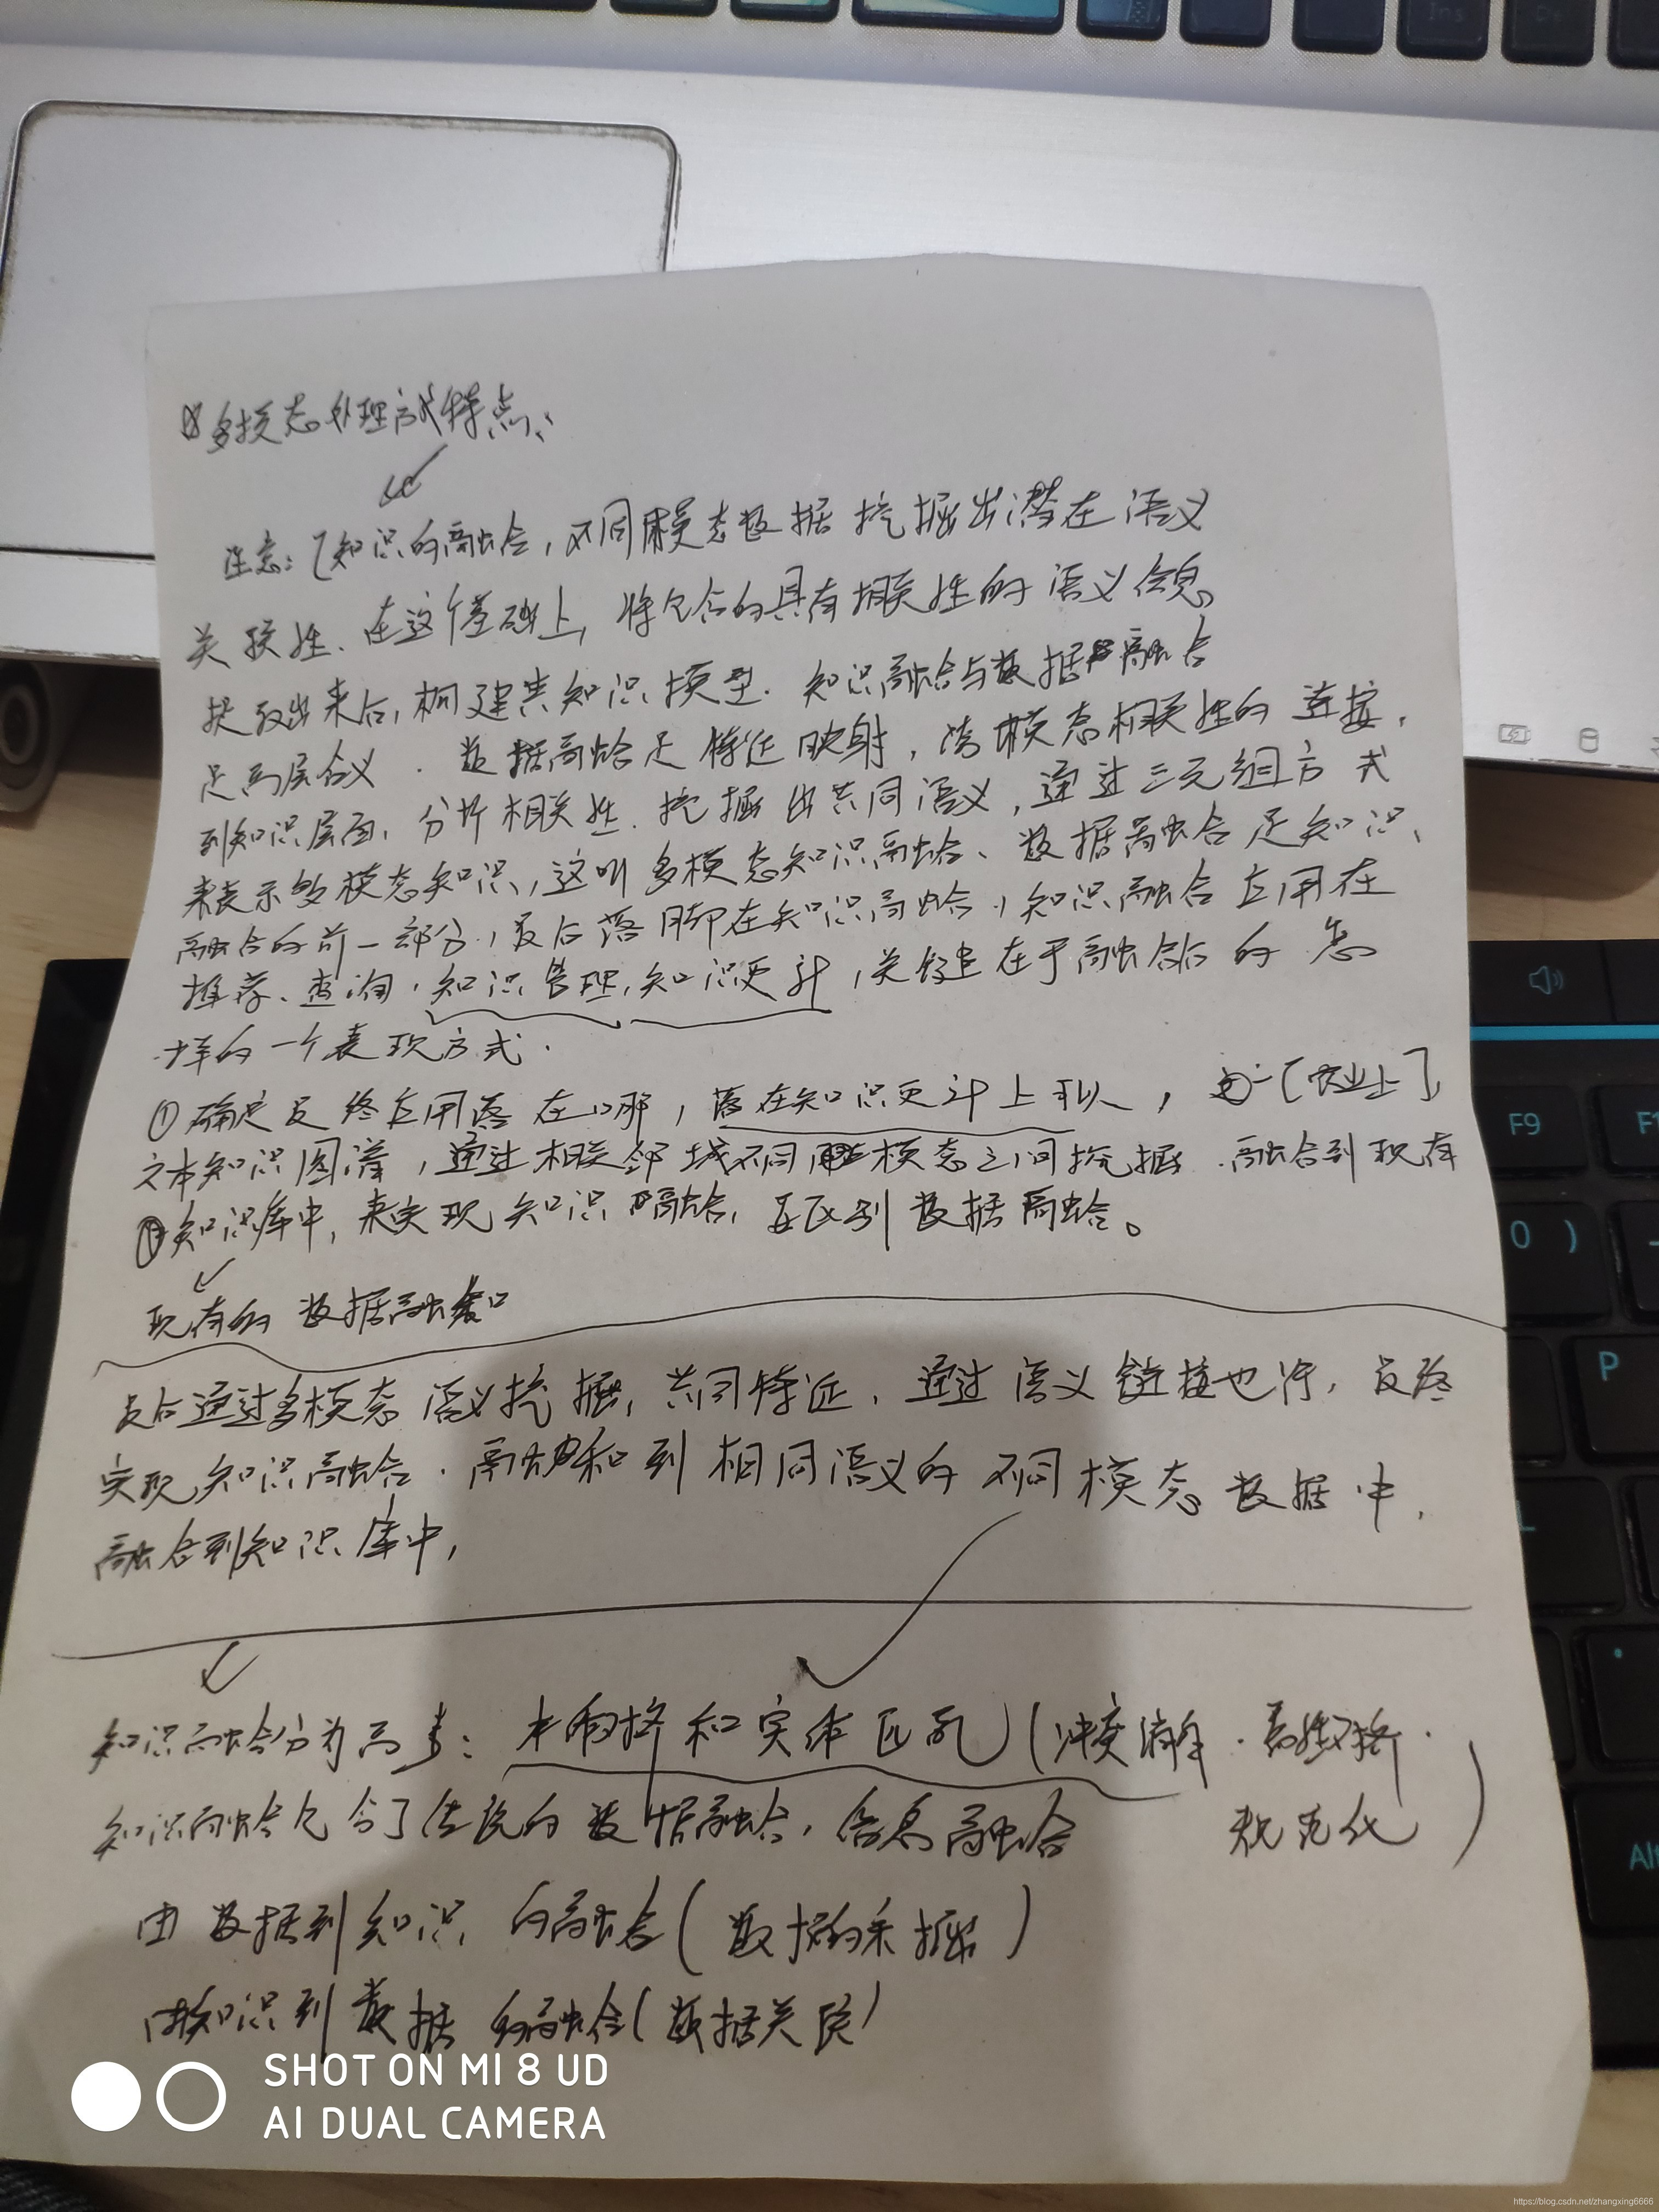 Ins
多模态处理方式特点:
注意:[知识的融合,不同模态数据挖掘出潜在语义
关联性.在这个基础上,将包含的具有相关性的语义信息
提取出来后,构建共知识模型.知识融合与数据融合
是高层含义.数据融合是特征映射,跨模态相关性的连接,
到知识层面,分析相关性.挖掘出共同语义,通过三元组方式
来表示多模态知识,这叫多模态知识融合、数据融合是知识
融合的前一部分,最后落脚在知识融合,知识融合应用在
推荐、查询,知识管理,知识更新,关键在于融合后的怎
样的一个表现方式.
①确定最终应用落在哪,落在知识更新上可以,
文本知识图谱,通过相关邻域不同模态之间挖掘.融合到现有
知识库中,来实现知识融合,区别数据融合。
现有的数据融合
最后通过多模态语义挖掘,共同特征,通过语义链接也行,最终
实现知识融合.融合到相同语义的不同模态数据中,
融合到知识库中,
知识融合分为两步:和实体匹配(冲突消解.
知识融合包含了传统的数据融合,信息融合
规范化)
由数据到知识的融合(数据的采掘)
由知识到数据的融合(数据关联)
F9
0 )
P
L
Alt
SHOT ON MI 8 UD
AI DUAL CAMERA
https://blog.csdn.net/zhangxing6666